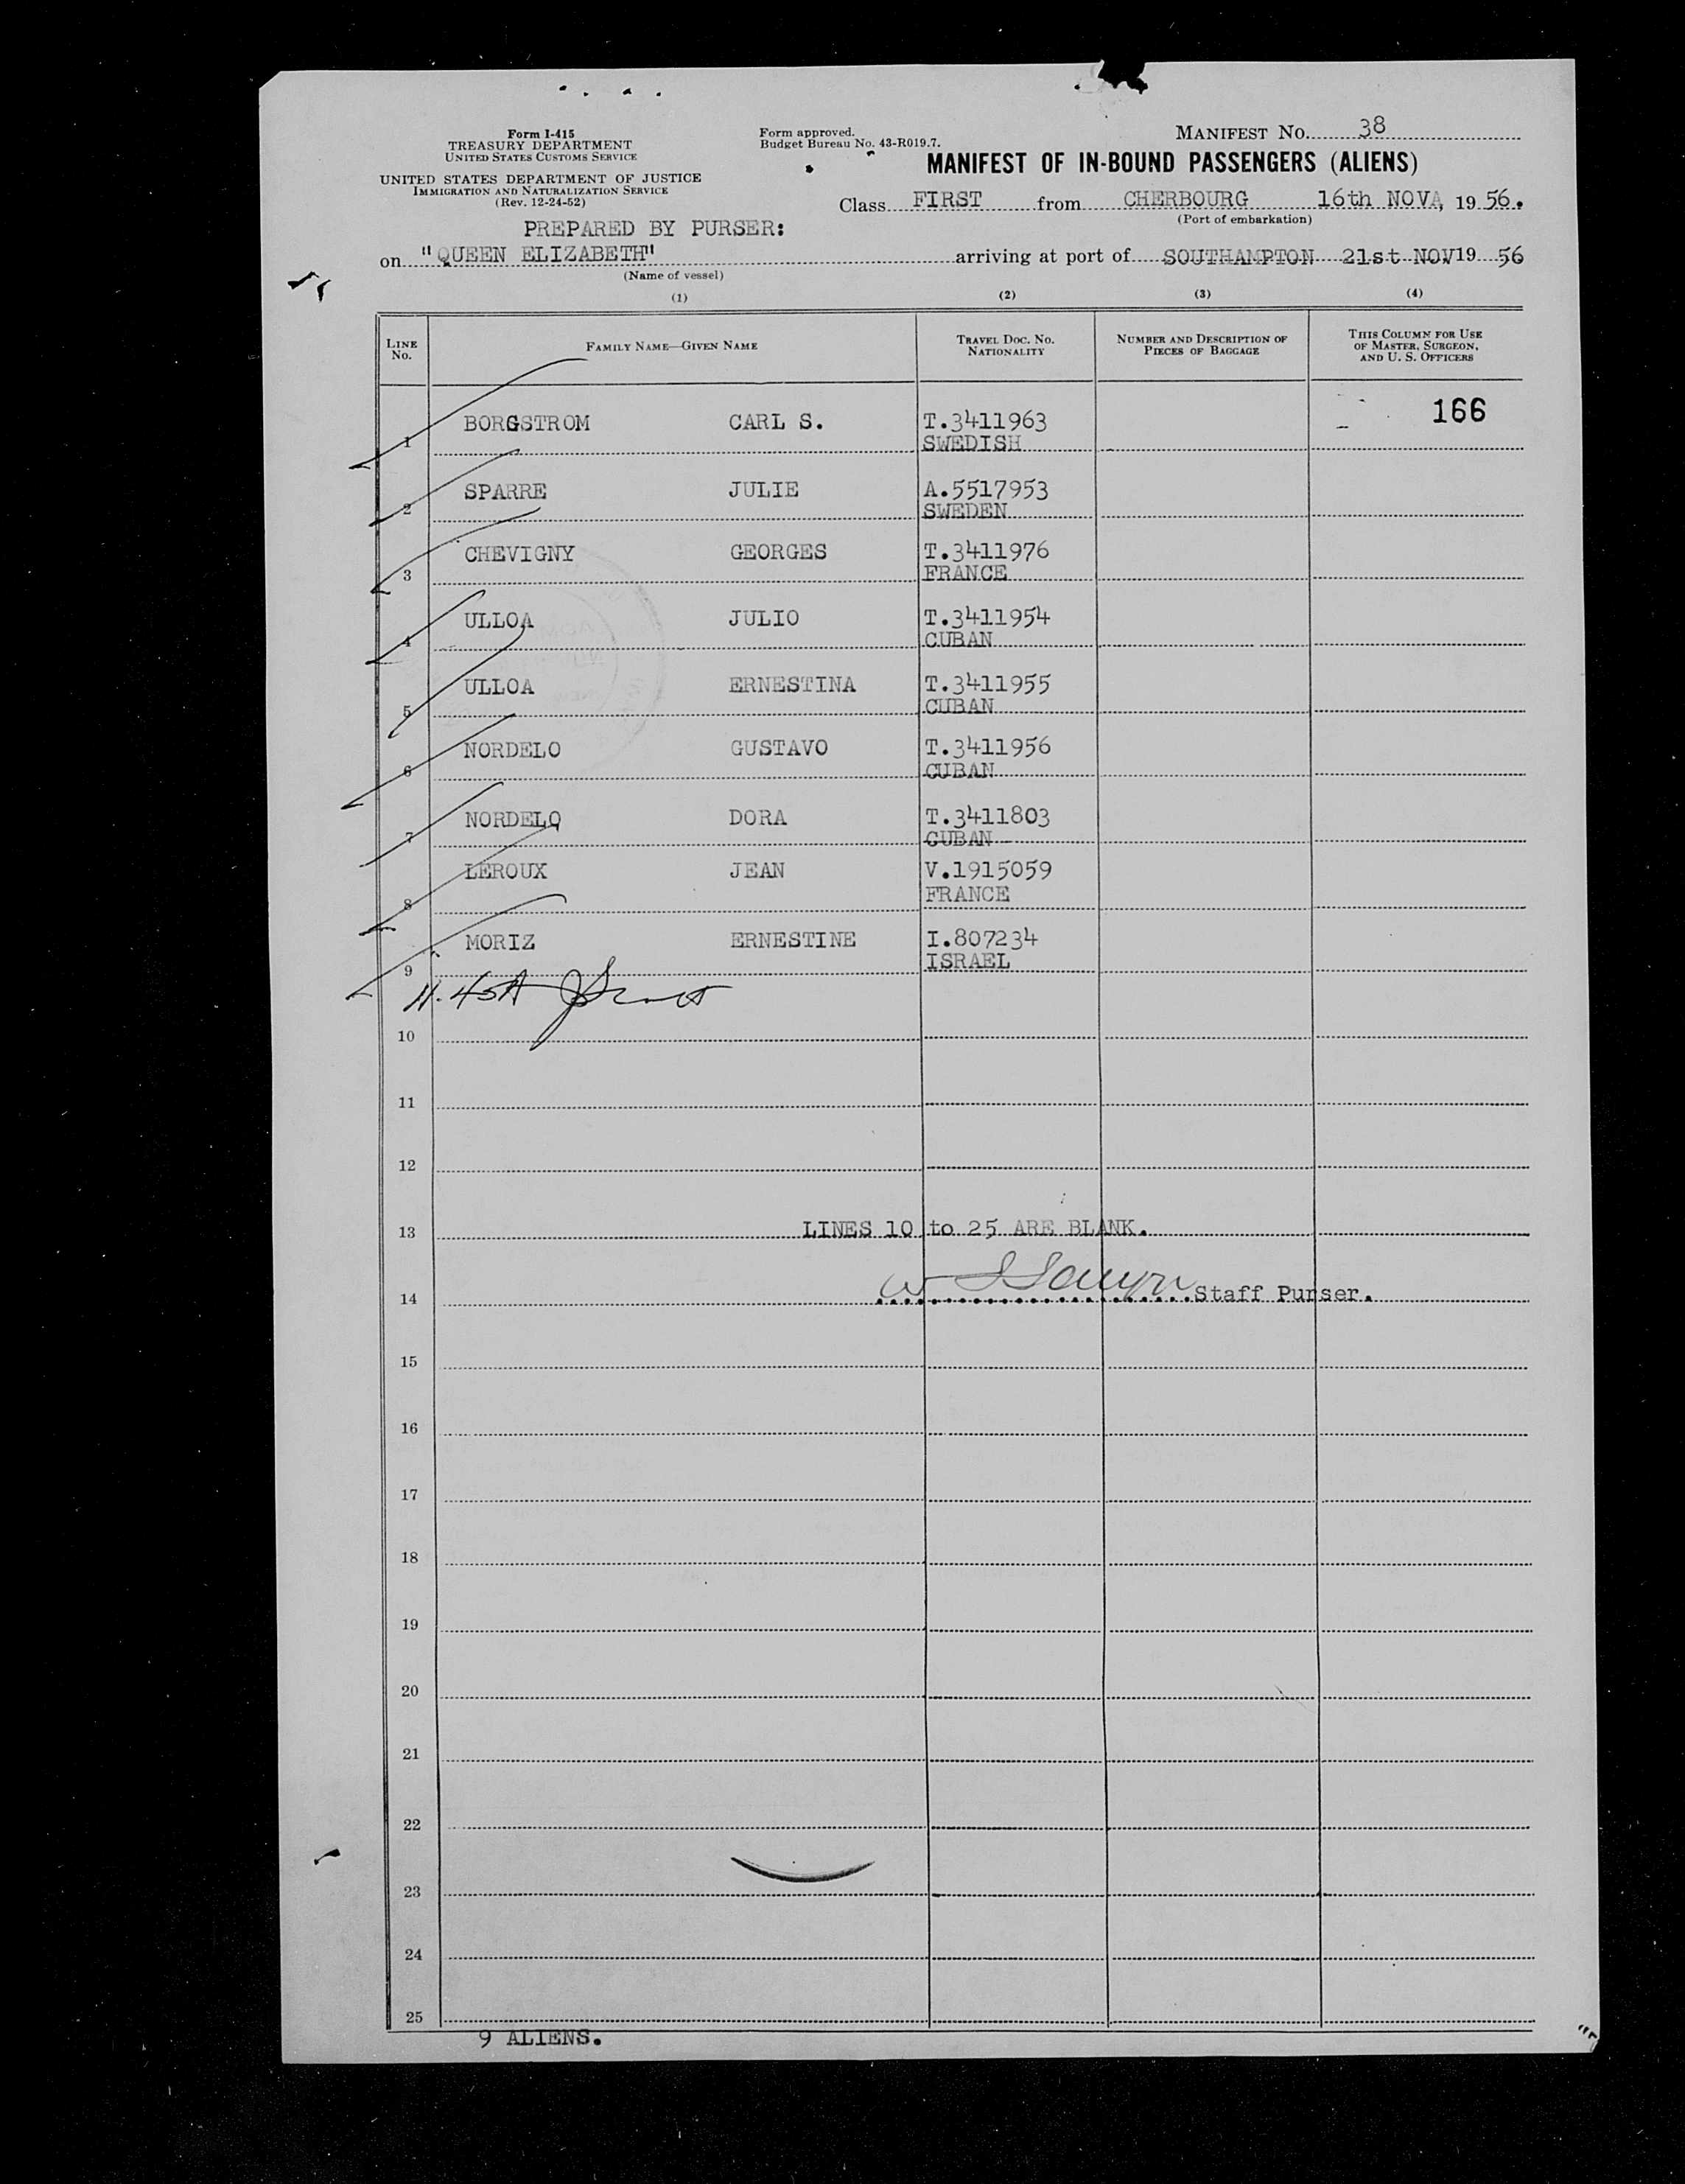 Form I-415
TREASURY DEPARTMENT
UNITED STATES CUSTOMS SERVICE
UNITED STATES DEPARTMENT OF JUSTICE
IMMIGRATION AND NATURALIZATION SERVICE
(Rev. 12-24-52)
Form approved.
Budget Bureau No. 43-R019.7.
MANIFEST NO. 38
MANIFEST OF IN-BOUND PASSENGERS (ALIENS)
Class FIRST from CHERBOURG 16th NOVA, 19 56.
(Port of embarkation)
PREPARED BY PURSER:
on "QUEEN ELIZABETH" arriving at port of SOUTHAMPTON 21st NOV 19 56
(Name of vessel)
(1) (2) (3) (4)
LINE NO. FAMILY NAME—GIVEN NAME TRAVEL DOC. NO. NATIONALITY NUMBER AND DESCRIPTION OF PIECES OF BAGGAGE THIS COLUMN FOR USE OF MASTER, SURGEON, AND U. S. OFFICERS
166
1 BORGSTROM CARL S. T.3411963
SWEDISH
2 SPARRE JULIE A.5517953
SWEDEN
3 CHEVIGNY GEORGES T.3411976
FRANCE
4 ULLOA JULIO T.3411954
CUBAN
5 ULLOA ERNESTINA T.3411955
CUBAN
6 NORDELO GUSTAVO T.3411956
CUBAN
7 NORDELO DORA T.3411803
CUBAN
8 LEROUX JEAN V.1915059
FRANCE
9 MORIZ ERNESTINE I.807234
ISRAEL
11.45A
10
11
12
13 LINES 10 to 25 ARE BLANK.
14 Staff Purser.
15
16
17
18
19
20
21
22
23
24
25
9 ALIENS.